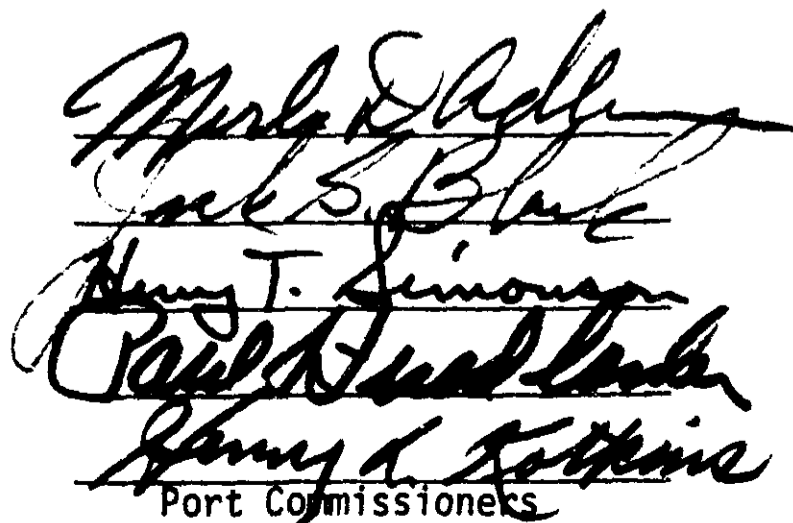 Merle D. Adlum
Jack S. Block
Henry T. Simonson
Paul
Henry L. Kotkins
Port Commissioners